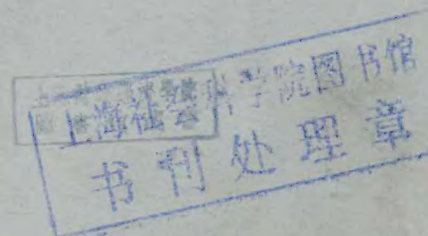 上海社会科学院图书馆
书刊处理章